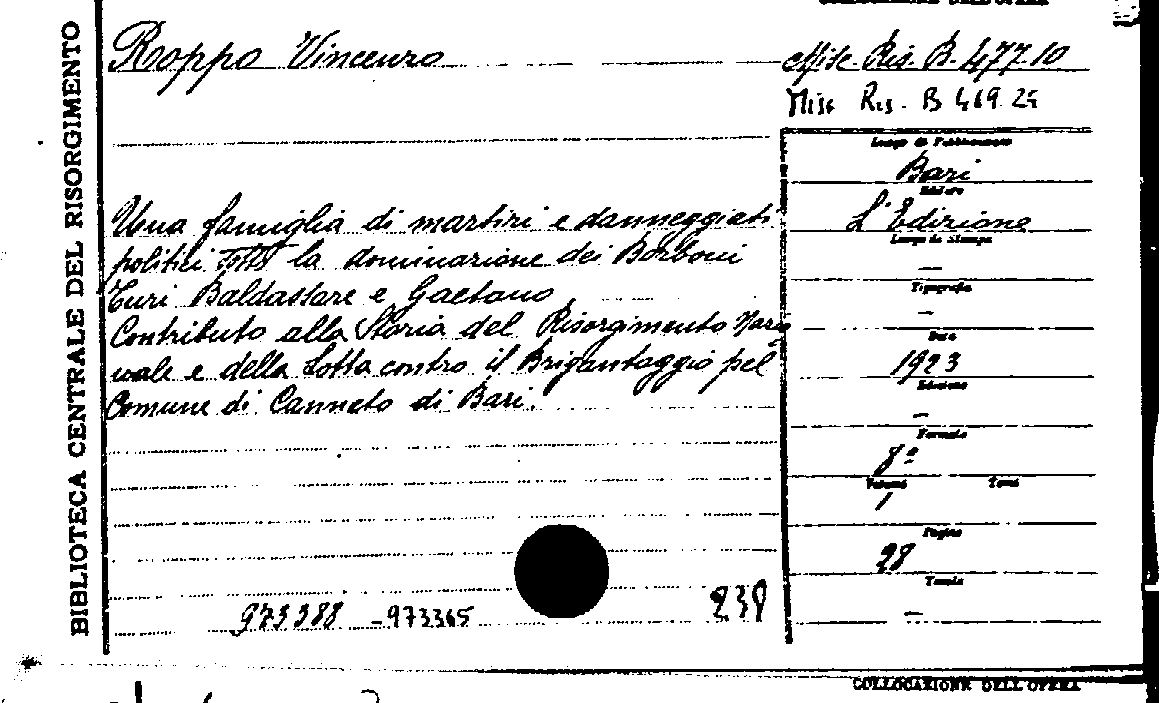 COLLOCAZIONE DELL'OPERA
BIBLIOTECA CENTRALE DEL RISORGIMENTO
Roppo Vincenzo
Misc. Ris. B. 477.10
Misc Ris. B 469.25
Una famiglia di martiri e danneggiati
politici sotto la dominazione dei Borboni
Turi Baldassare e Gaetano
Contributo alla Storia del Risorgimento Nazio
nale e della Lotta contro il Brigantaggio pel
Comune di Canneto di Bari.
Luogo di Pubblicazione
Bari
Editore
L'Edizione
Luogo di Stampa
—
Tipografia
—
Data
1923
Edizione
—
Formato
8º
Volumi Tomi
1
Pagine
28
Tavole
—
973388 -973365
238
COLLOCAZIONE DELL'OPERA